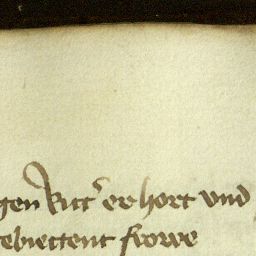 gen kut' erhort vnd
ebiettent frowe